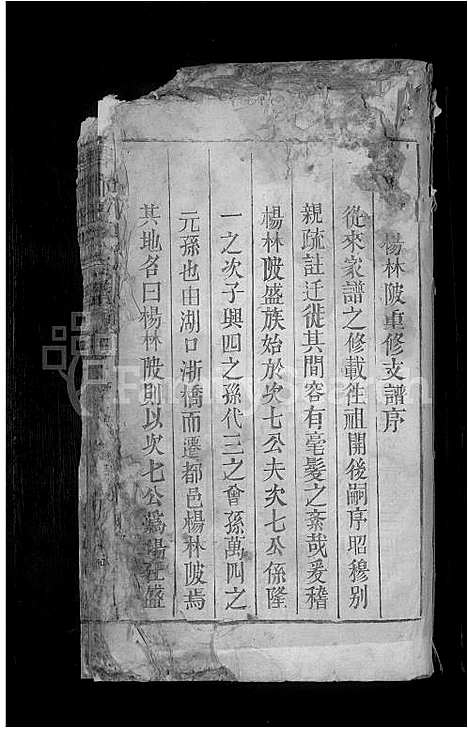 楊林陂重修支譜序
從來家譜之修載徃祖開後嗣序昭穆别
親疏註迁徙其間容有毫髮之紊哉爰稽
楊林陂盛族始於次七公夫次七公係隆
一之次子興四之孫代三之會孫萬四之
元孫也由湖口浙橋而遷都邑楊林陂焉
其地名曰楊林陂則以次七公爲楊林盛